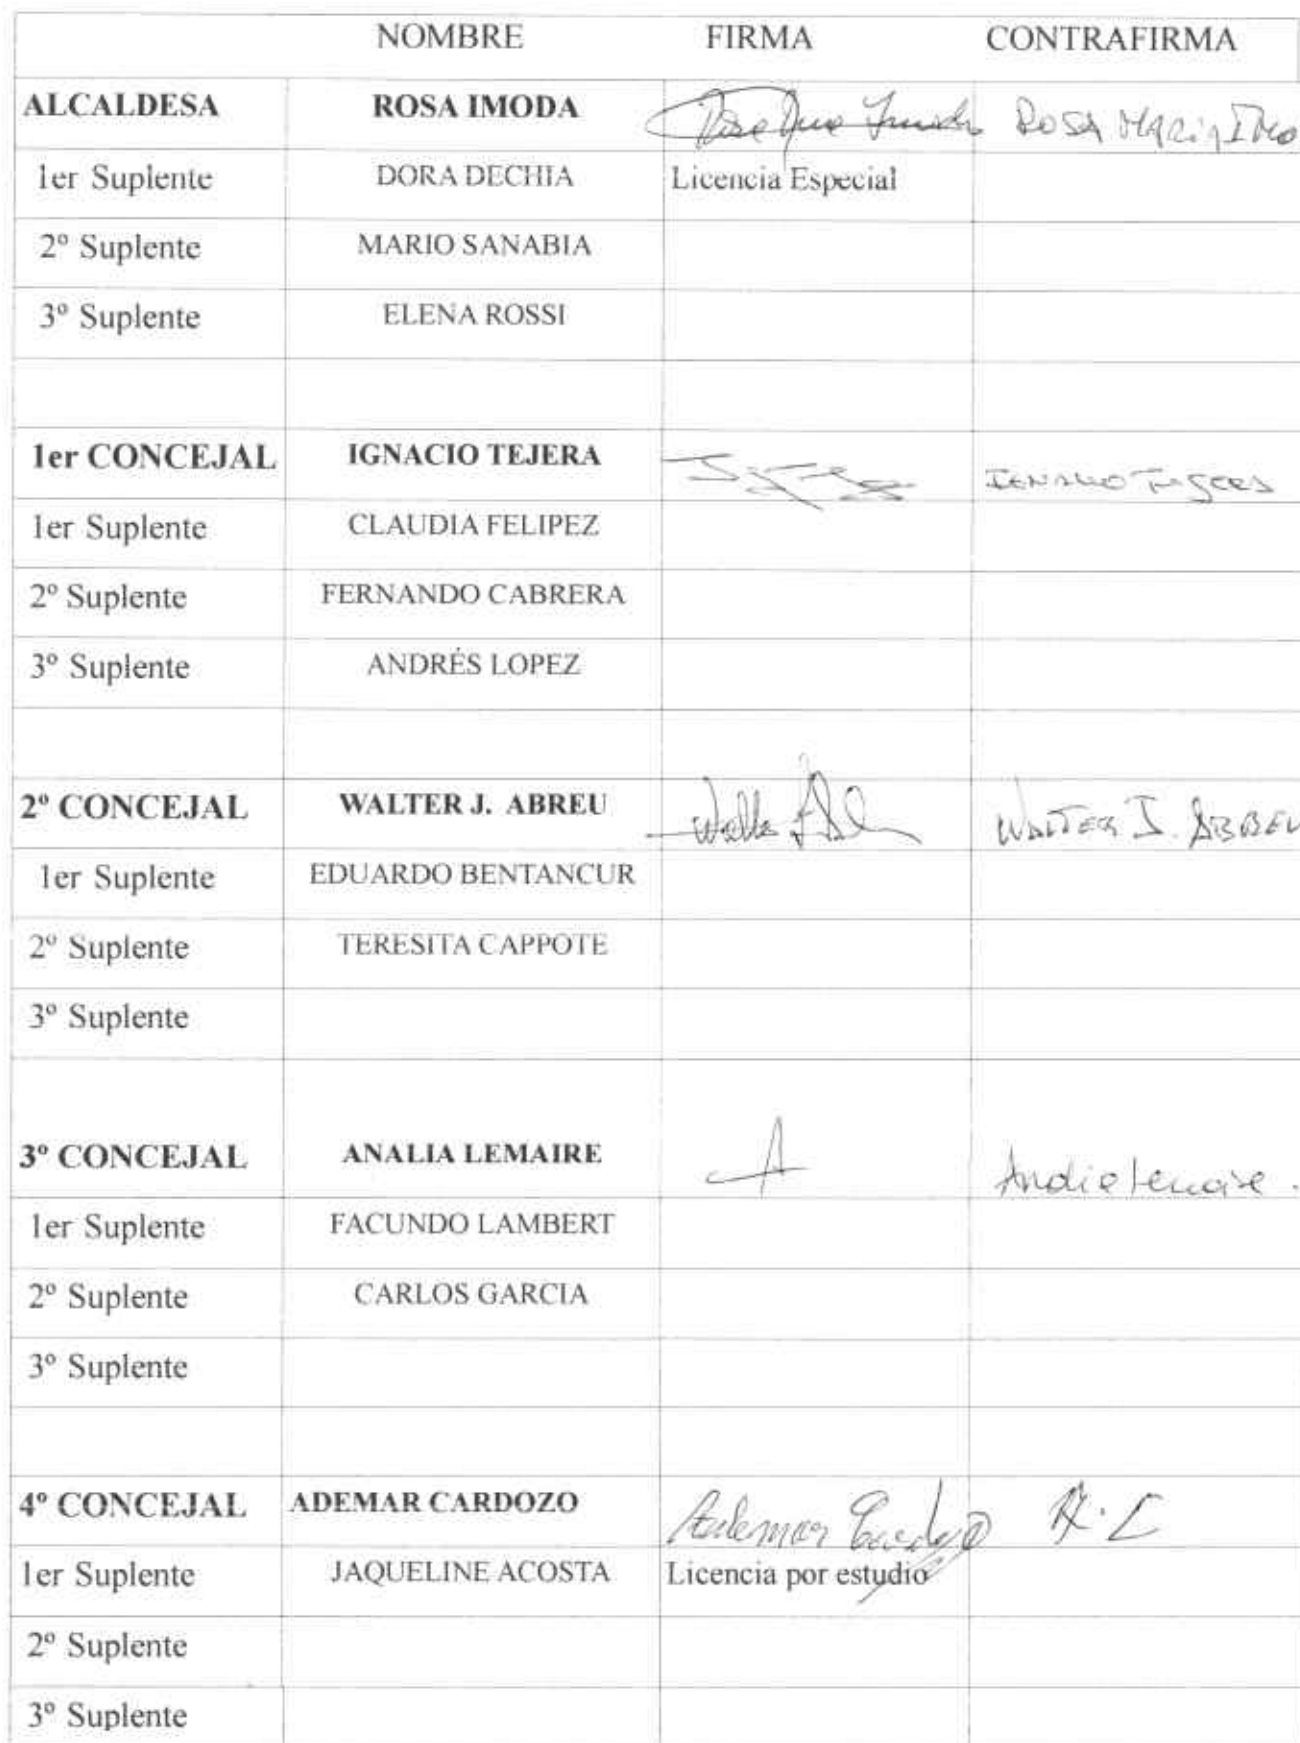 NOMBRE FIRMA CONTRAFIRMA
ALCALDESA ROSA IMODA Rosa Maria Imo
1er Suplente DORA DECHIA Licencia Especial
2º Suplente MARIO SANABIA
3º Suplente ELENA ROSSI
1er CONCEJAL IGNACIO TEJERA IGNACIO TEJERA
1er Suplente CLAUDIA FELIPEZ
2º Suplente FERNANDO CABRERA
3º Suplente ANDRÉS LOPEZ
2º CONCEJAL WALTER J. ABREU Walter WALTER J. ABREU
1er Suplente EDUARDO BENTANCUR
2º Suplente TERESITA CAPPOTE
3º Suplente
3º CONCEJAL ANALIA LEMAIRE A Analia Lemaire.
1er Suplente FACUNDO LAMBERT
2º Suplente CARLOS GARCIA
3º Suplente
4º CONCEJAL ADEMAR CARDOZO Ademar Cardozo A.C
1er Suplente JAQUELINE ACOSTA Licencia por estudio
2º Suplente
3º Suplente